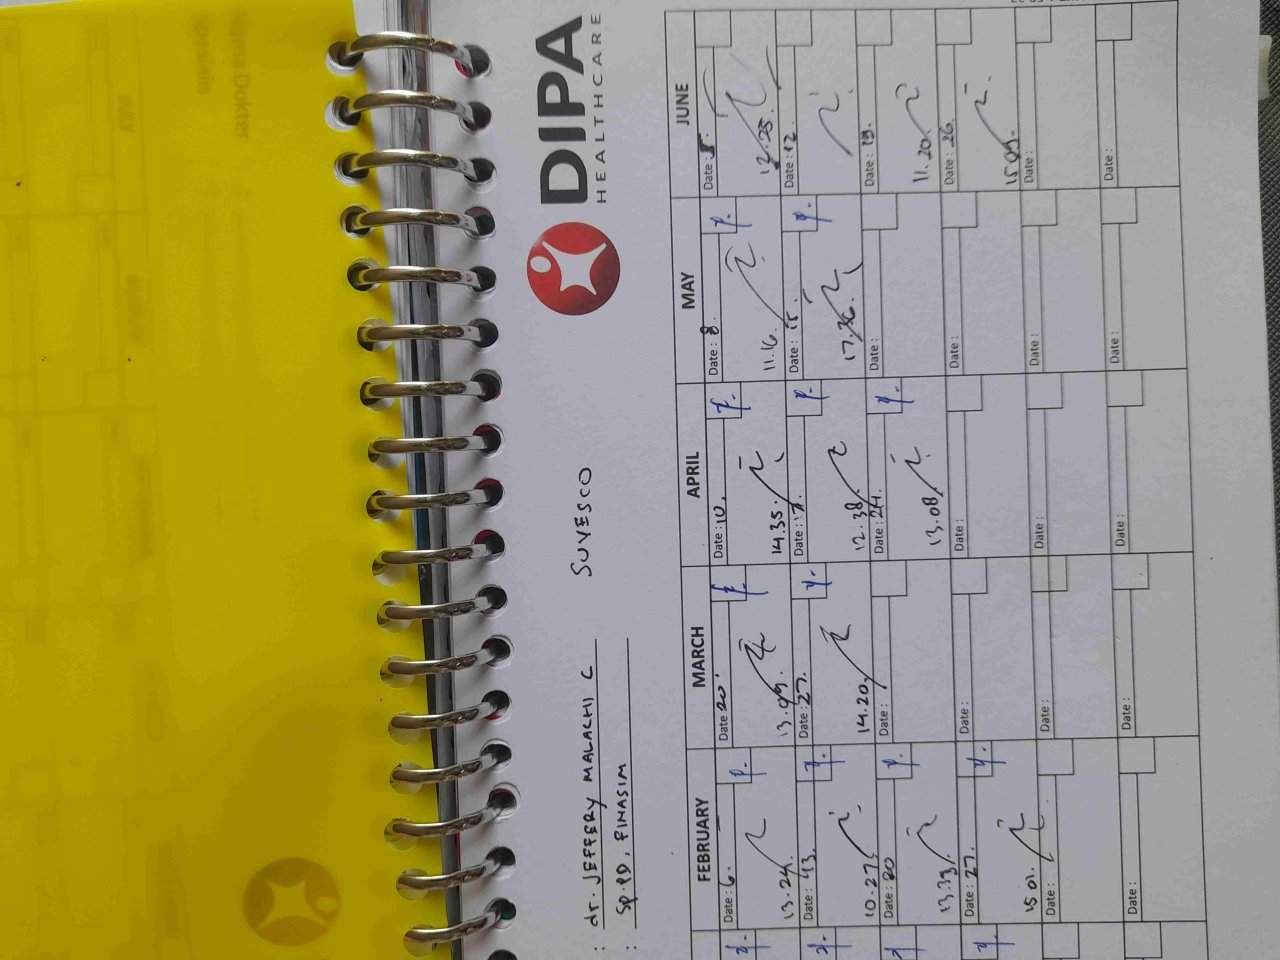 DIPA
HEALTHCARE
: dr. JEFFERY MALACHI C SUVESCO
: Sp.PD, FINASIM
FEBRUARY MARCH APRIL MAY JUNE
Date: 6. Date: 20 Date: 10. Date: 8. Date: 5.
13.24. 13.09. 14.35. 11.16. 12.25.
Date: 13. Date: 27. Date: 17. Date: 15. Date: 12.
10.27. 14.20. 12.38. 17.36.
Date: 20 Date: Date: 24. Date: Date: 19.
13.33. 13.08. 11.20.
Date: 27. Date: Date: Date: Date: 26.
15.01. 15.09.
Date: Date: Date: Date: Date:
Date: Date: Date: Date: Date: